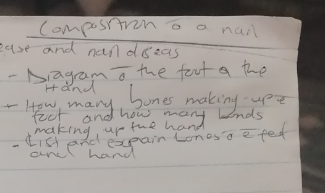 Composition o a nail
ease and nail diseas
- Diagram o the foot & the
Hand
- How many bones making-up e
foot and how many
making up the hand
- List and expain bones o e feet
and hand